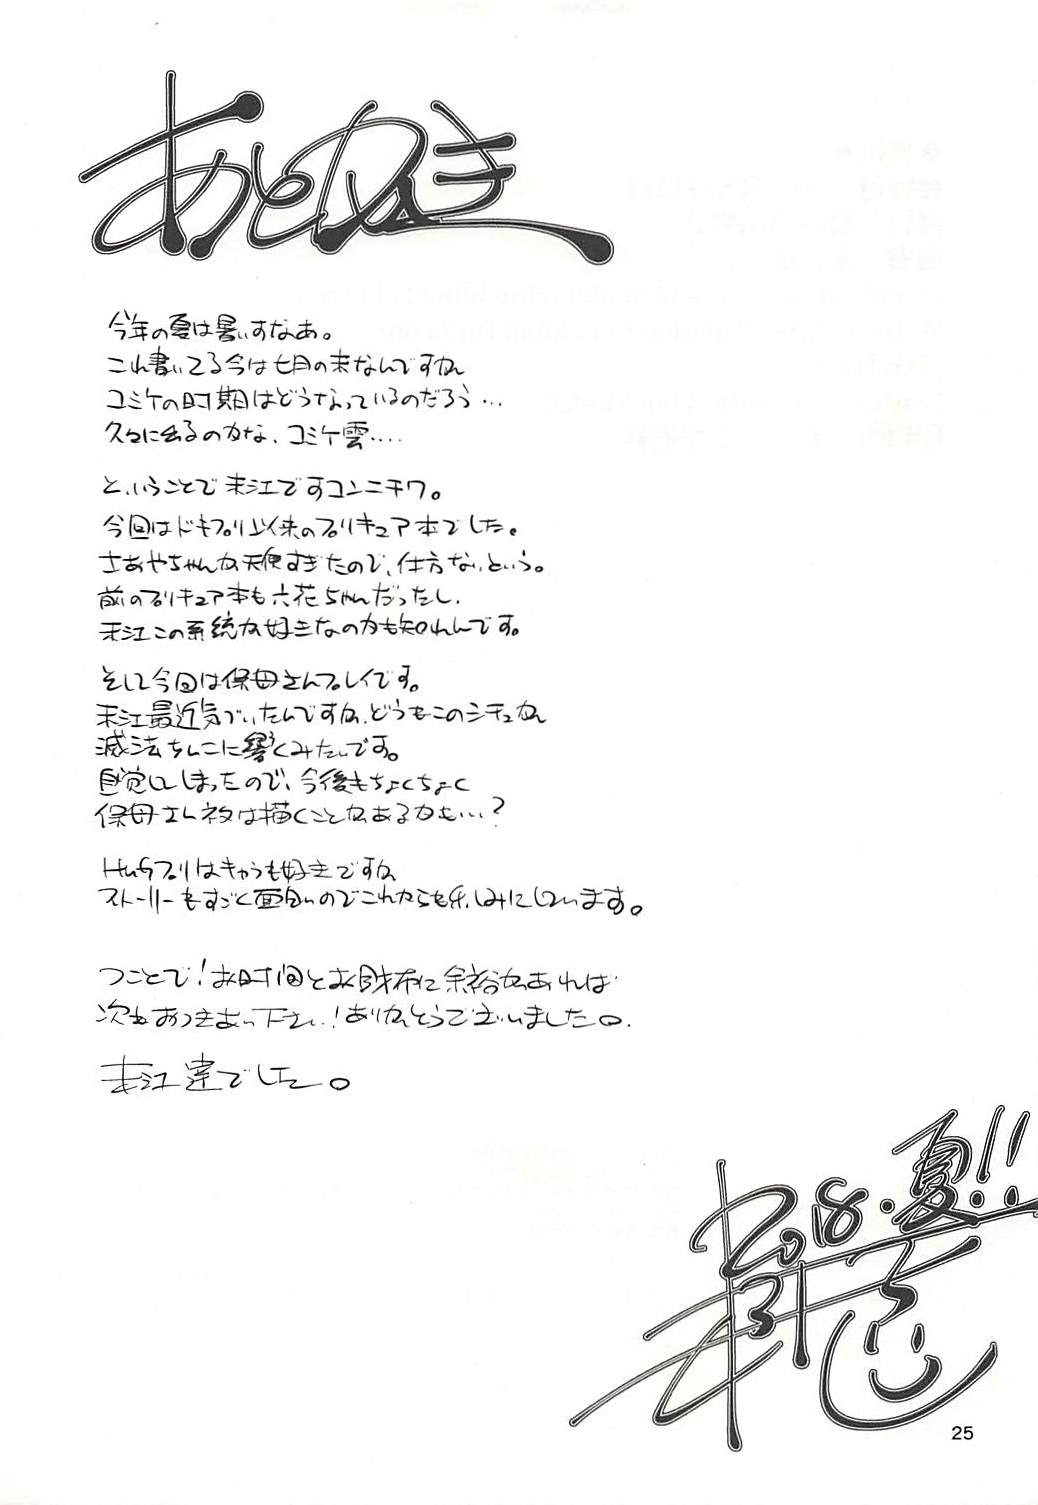 あとがき
今年の夏は暑いすなあ。
これ書いてる今は七月の末なんですが
コミケの時期はどうなっているのだろう…
久々に出るのかな、コミケ雲….
と、いうことで末江ですコンニチワ。
今回はドキプリ以来のプリキュア本でした。
さあやちゃんが天使すぎたので、仕方ないという。
前のプリキュア本も六花ちゃんだったし、
末江この系統が好きなのかも知れんです。
そして今回は保母さんプレイです。
末江最近気づいたんですが、どうもこのシチュが
滅法ちんこに響くみたいです。
自覚してしまったので、今後もちょくちょく
保母さんネタは描くことがあるかも…?
Hugプリはキャラも好きですが
ストーリーもすごく面白いのでこれからも楽しみにしています。
つことで!お時間とお財布に余裕があれば
次もおつきあい下さい!ありがとうございました。
末江達でした。
2018.夏!!
25